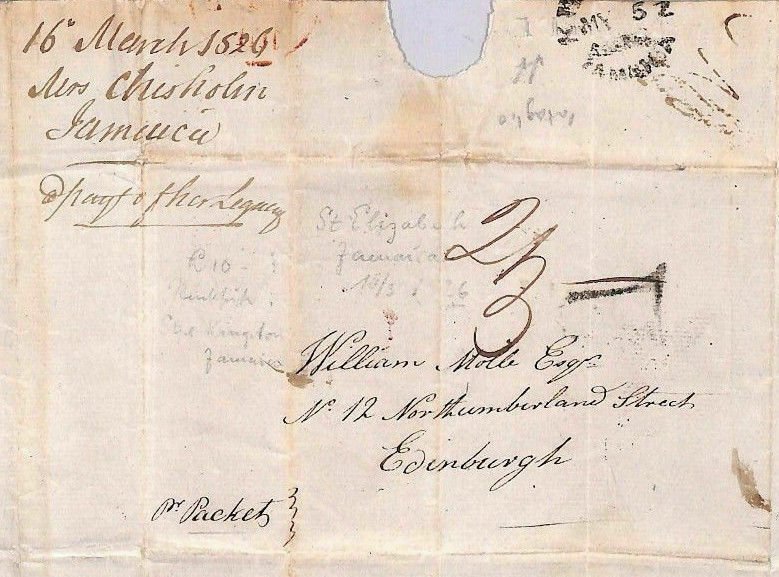 16 March 1826
Mrs Chisholm
Jamaica
payt of her Legacy
St Elizabeth
Jamaica
£10
Kingston
Jamaica
2/3
William Molle Esqr
No. 12 Northumberland Street
Edinburgh
Pr Packet